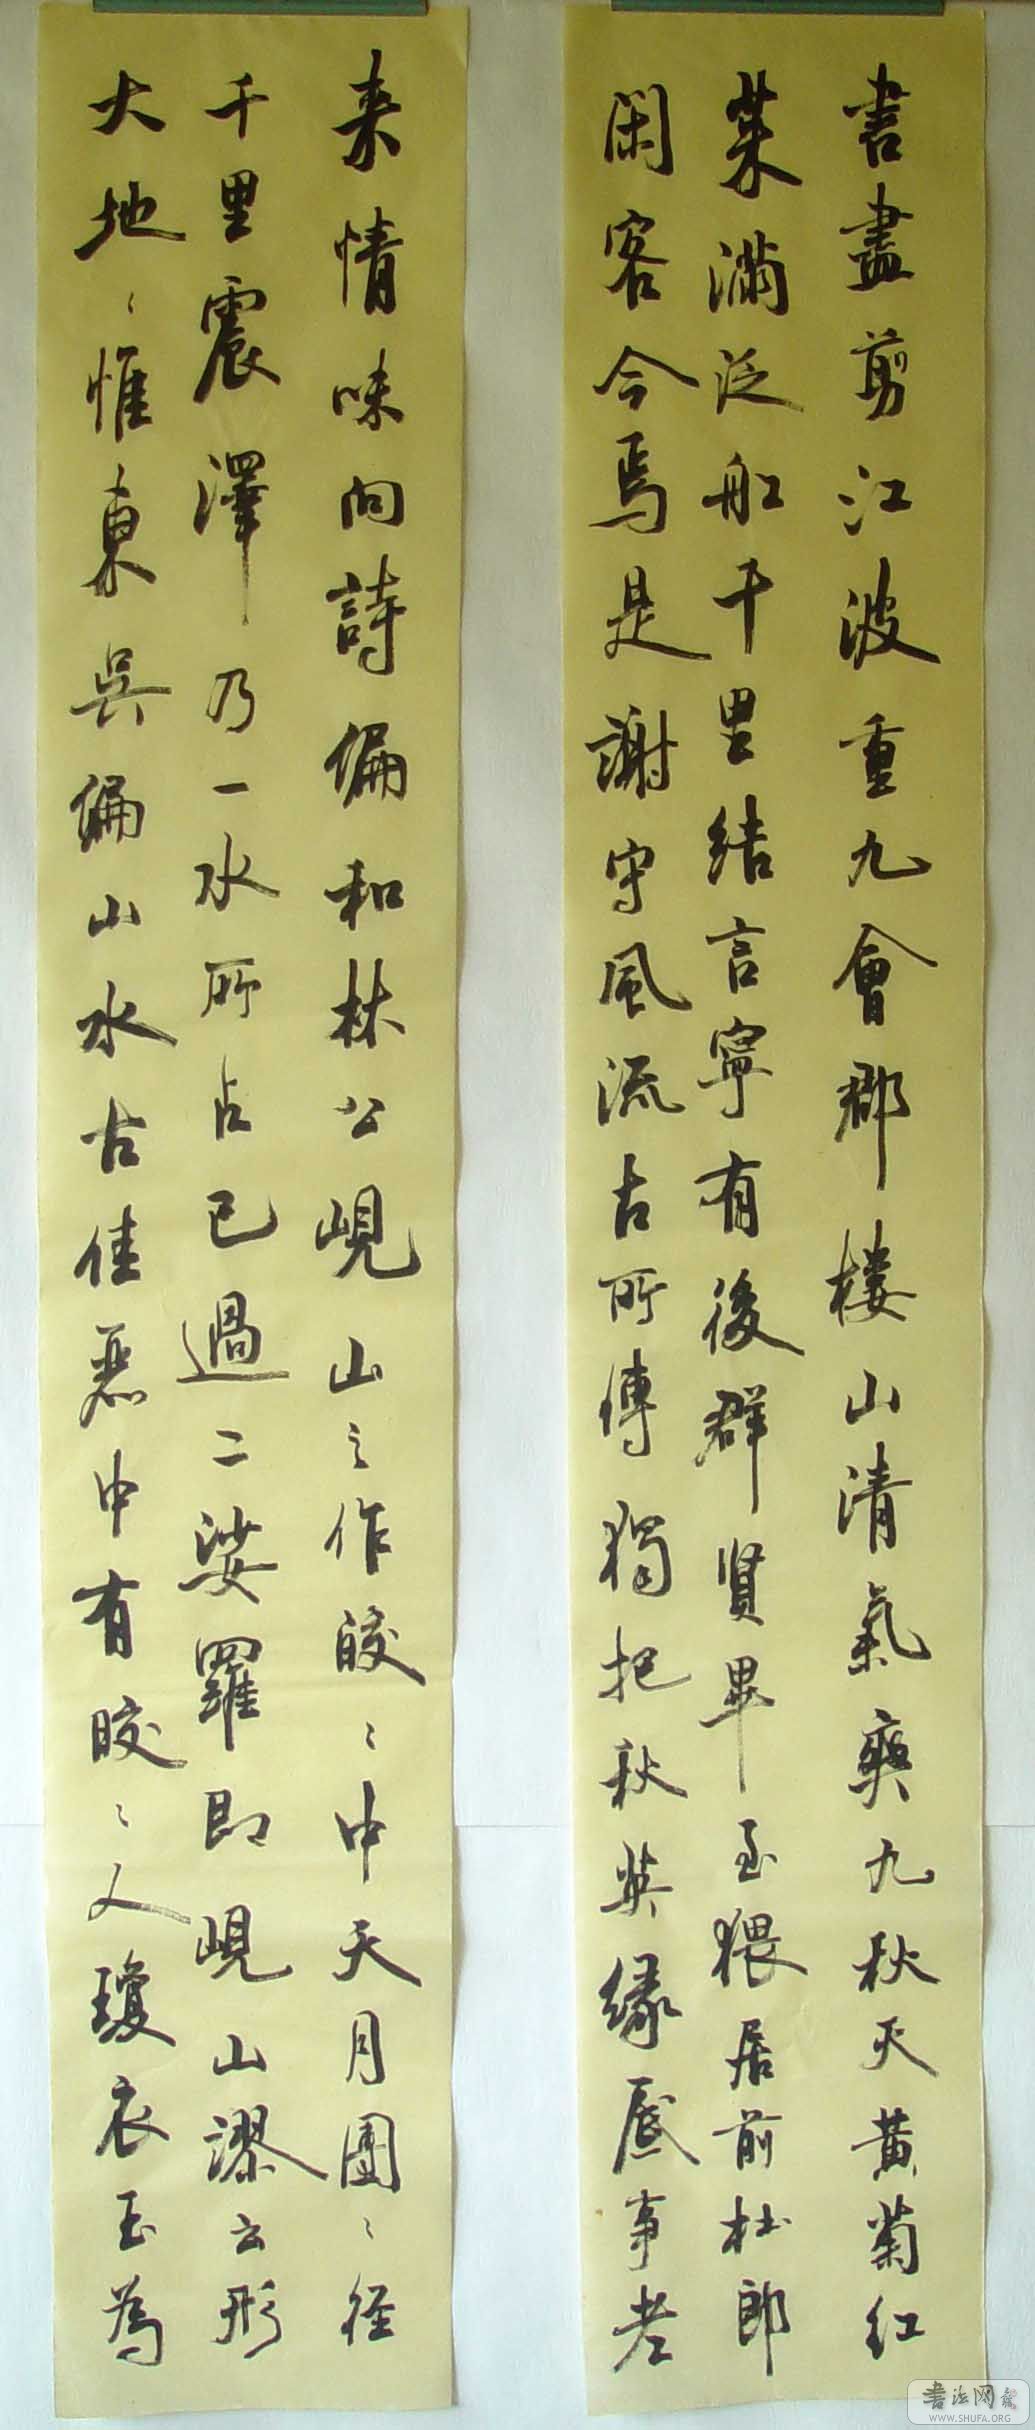 書畫剪江波重九會郡樓山清氣爽九秋天黃菊紅
茱滿泛船千里結言寧有後群賢畢至猥居前杜郎
閑客今焉是謝守風流古所傳獨把秋英緣底事老
来情味向詩偏和林公峴山之作皎〻中天月團〻徑
千里震澤乃一水所占已過二娑羅即峴山謬云形
大地〻惟東吳偏山水古佳麗中有皎〻人瓊衣玉為
書法网
WWW.SHUFA.ORG